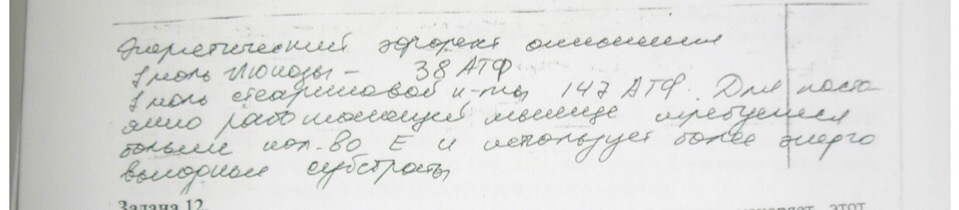 Энергетический эффект окисления
1 моль глюкозы – 38 АТФ
1 моль стеариновой к-ты 147 АТФ. Для посто
янно работающей мышце требуется
больше кол-во Е и использует более энерго
выгодные субстраты
Задача 12.
этот